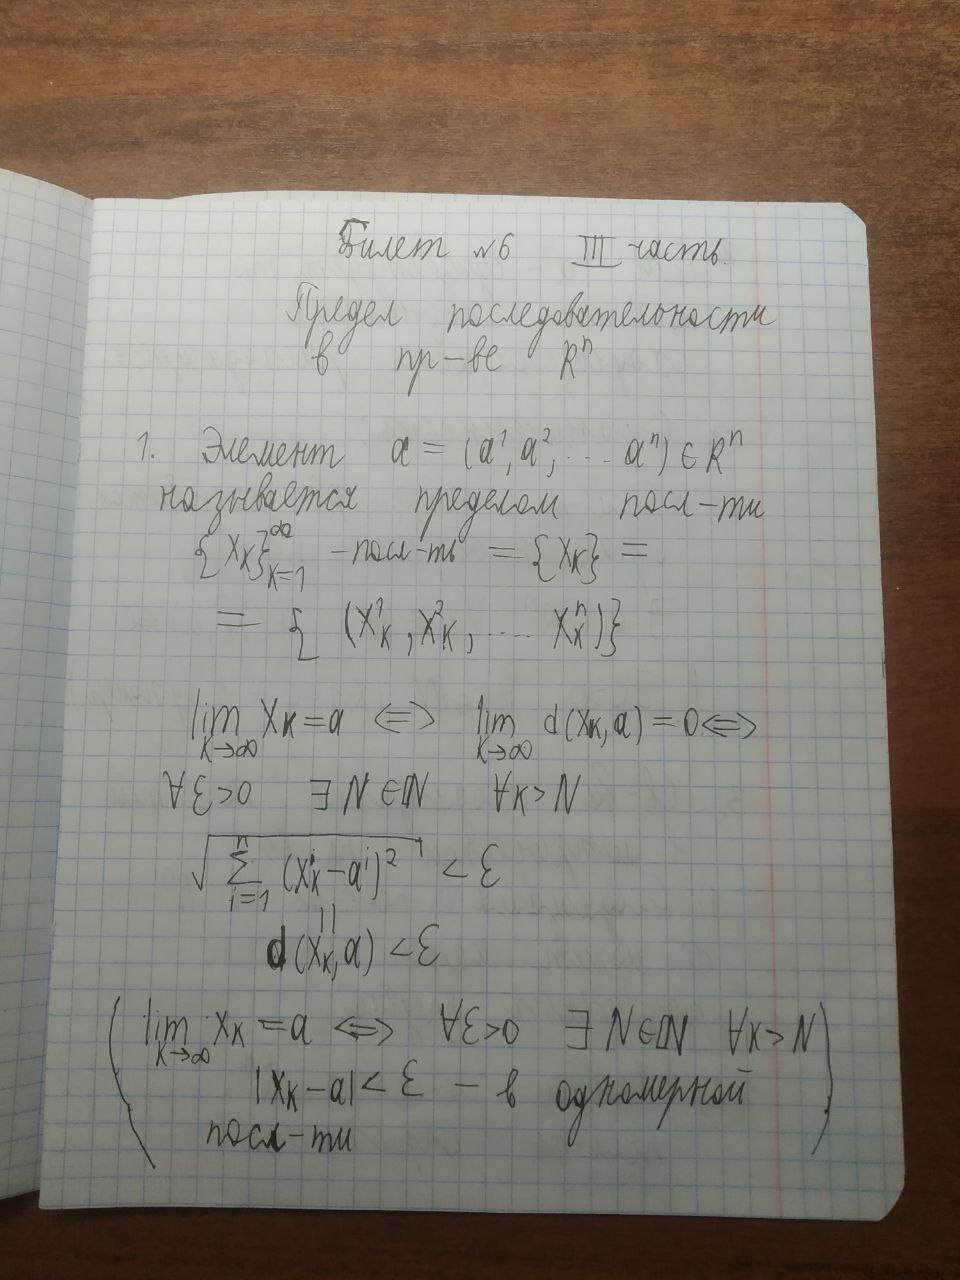 Билет №6 III часть.
Предел последовательности
в пр-ве Rⁿ
1. Элемент a = (a¹, a², .... aⁿ) ∈ Rⁿ
называется пределом посл-ти
{x_k}_{k=1}^∞ - посл-ть = {x_k} =
= { (x_k¹, x_k², .... x_kⁿ)}
lim_{k→∞} x_k = a ⟺ lim_{k→∞} d(x_k, a) = 0 ⟺
∀ε>0 ∃ N ∈ ℕ ∀k > N
√(∑_{i=1}^n (x_k^i - a^i)²) < ε
||
d(x_k, a) < ε
(lim_{k→∞} x_k = a ⟺ ∀ε>0 ∃ N∈ℕ ∀k > N
|x_k - a| < ε - в одномерной
посл-ти)